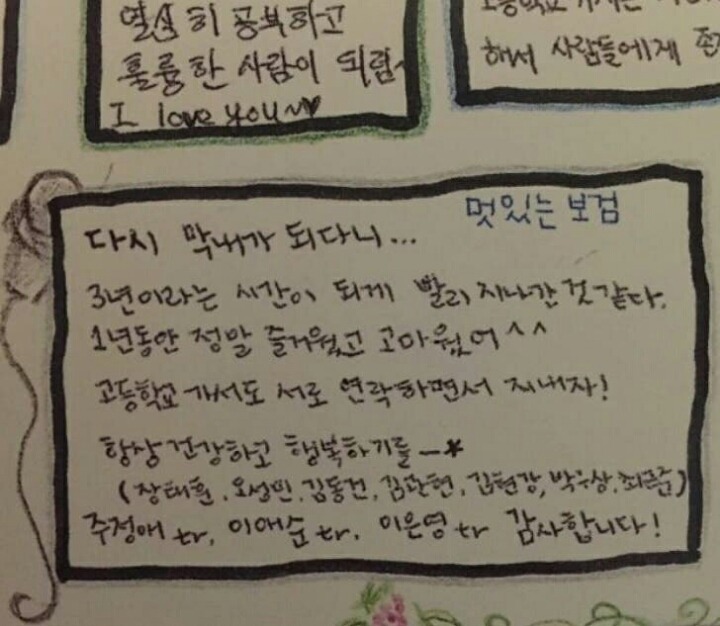 열심히 공부하고
훌륭한 사람이 되렴~
I love you~♥
해서 사람들에게
멋있는 보검
다시 막내가 되다니...
3년이라는 시간이 되게 빨리 지나간 것 같다.
1년동안 정말 즐거웠고 고마웠어^^
고등학교 가서도 서로 연락하면서 지내자!
항상 건강하고 행복하기를—*
(장태훈, 오성민, 김동건, 김관현, 김현강, 박우상,
주정애 tr, 이애순 tr, 이은영 tr 감사합니다!